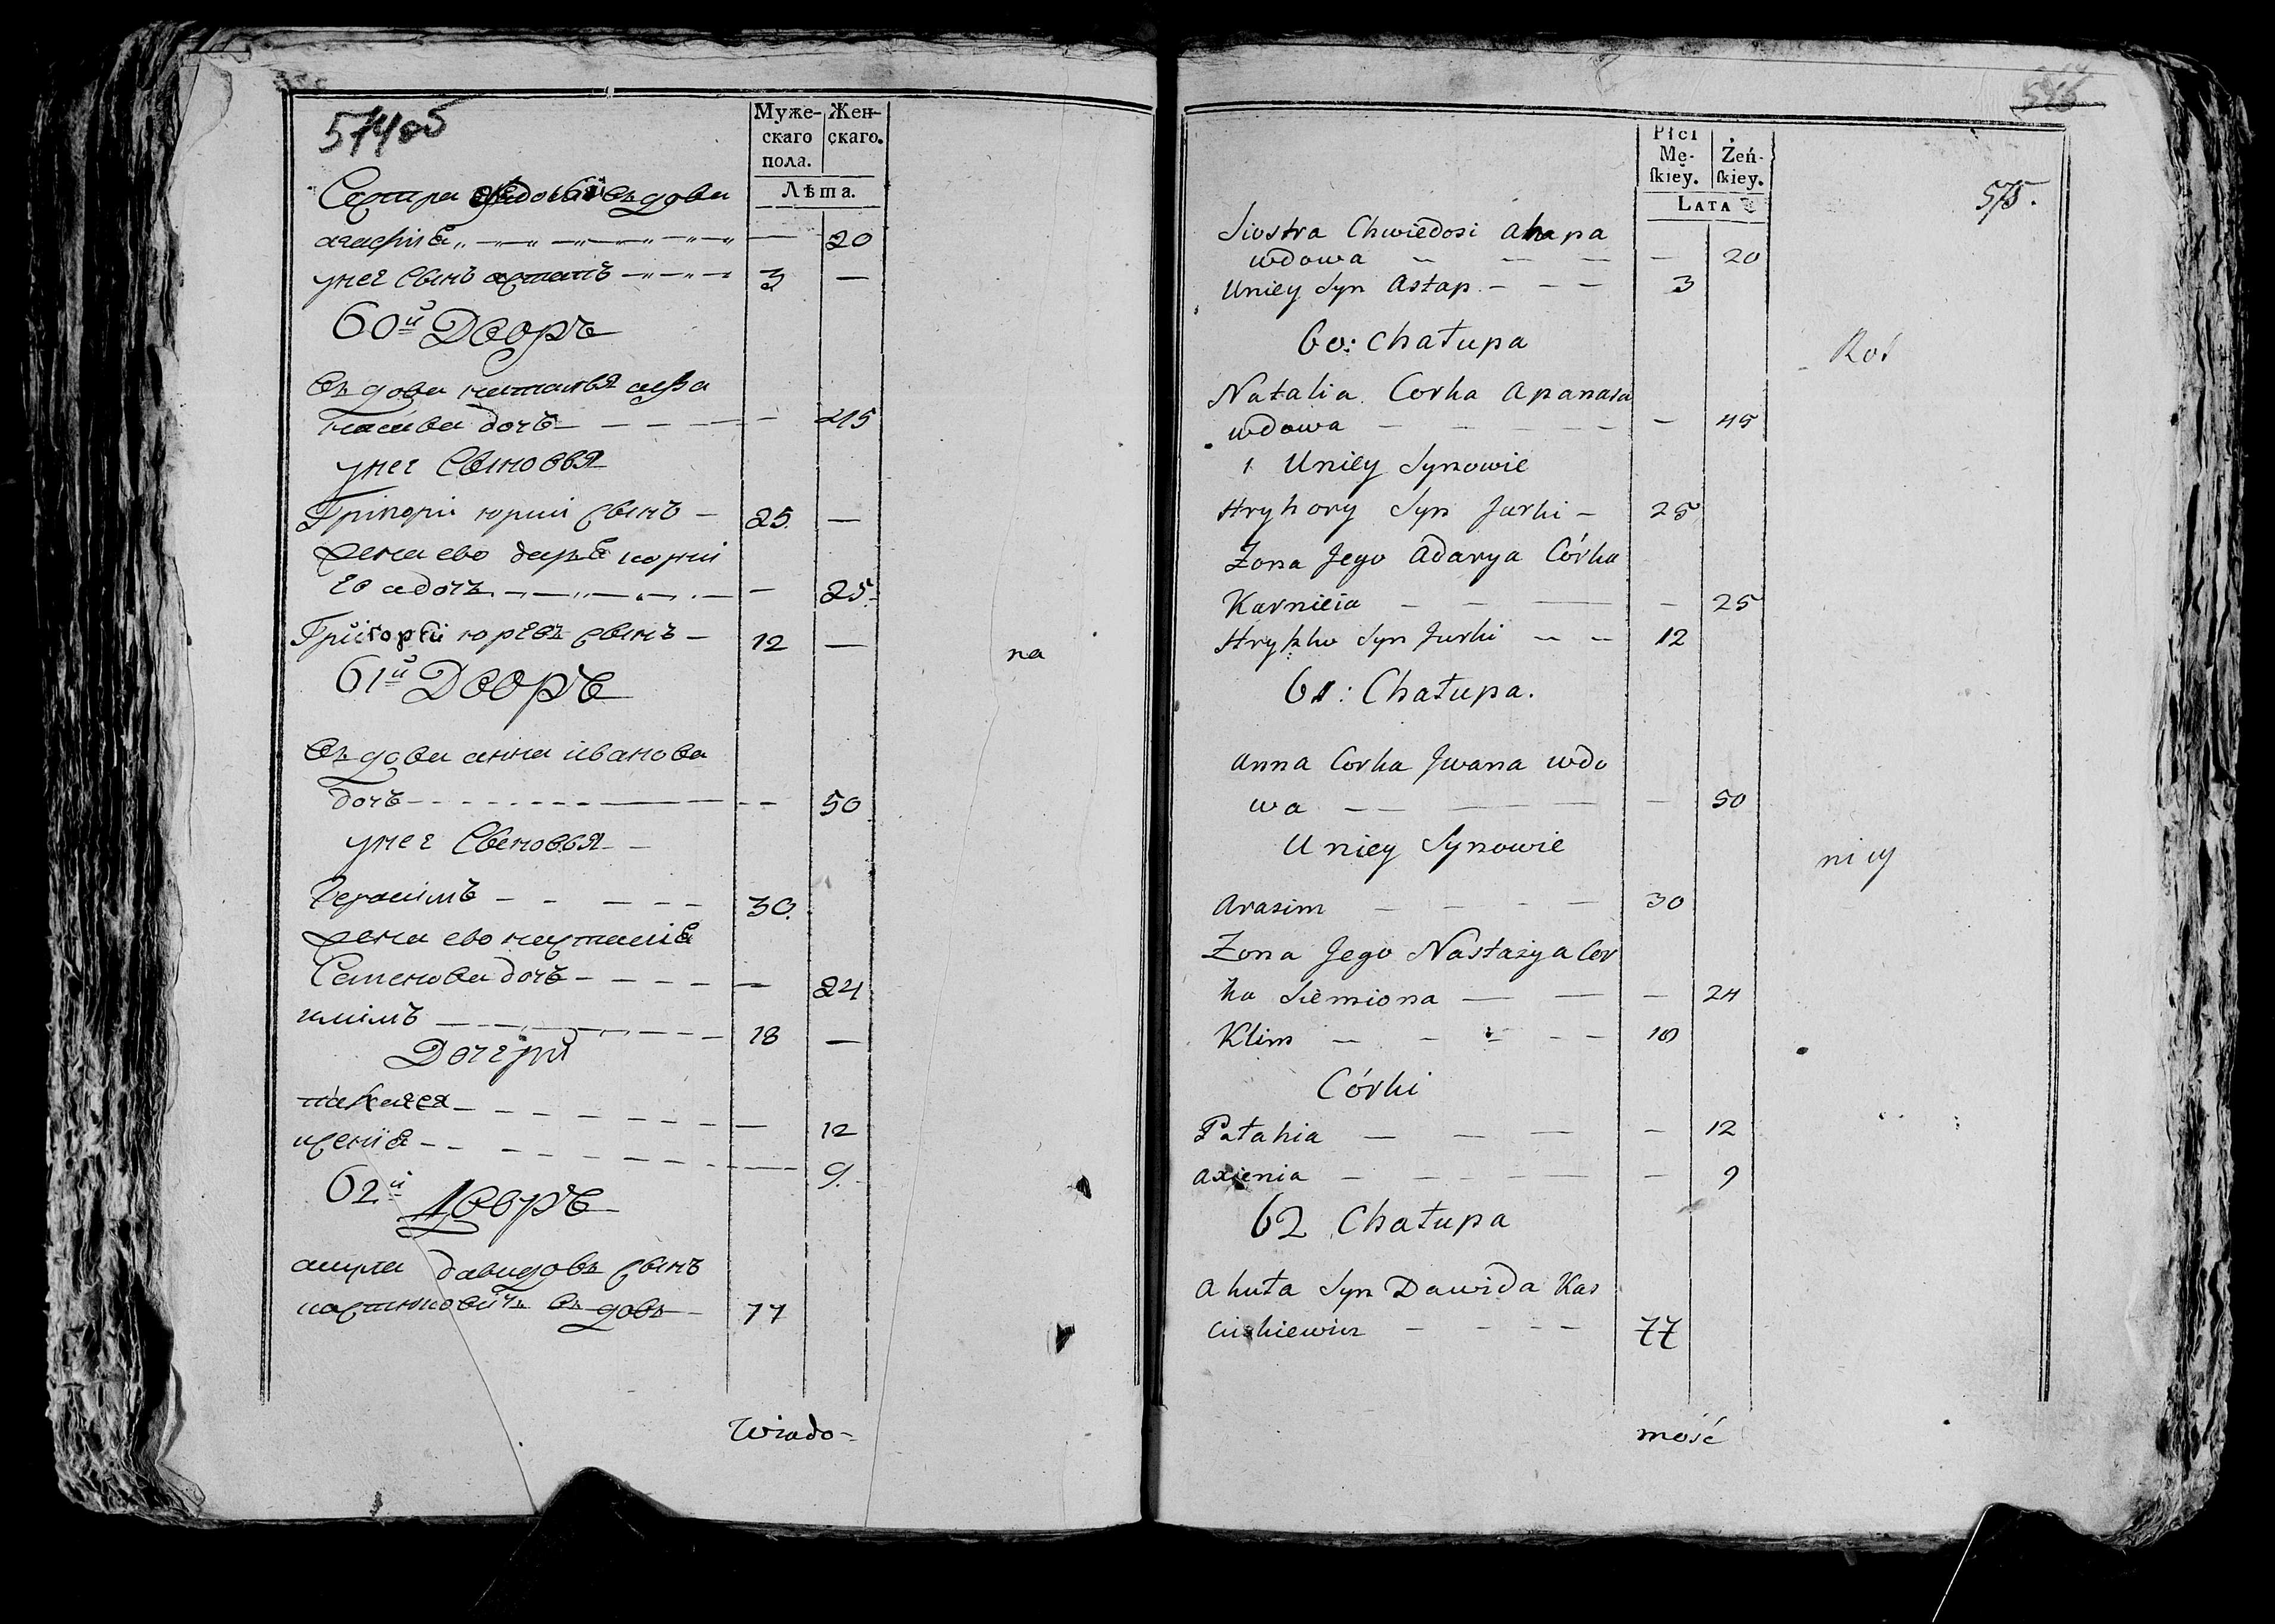 574об
Муже- Жен-
скаго скаго.
пола.
Лѣта.
Сестра въдова
агафия — 20
унее сынъ астапъ 3 —
60й Дворъ
въдова наталья афа
насьева дочь — 45
унее сыновья
Григорий юрии сынъ — 25. —
жена ево дарья корни
ева дочь — 25.
Григории юревъ сынъ — 12 —
61й Дворъ
въдова анна иванова
дочь — 50
унее сыновья
Герасимъ 30.
жена ево настасия
Семенова дочь — 24
климъ 18 —
Дочери
12
ксения — 9.
62й Дворъ
давидовъ сынъ
въдовъ 77
na
Wiado-
Płci
Mę- Żeń-
ſkiey. ſkiey.
LATA
575.
Siostra Chwiedosi Ahapa
wdowa — 20
Uniey Syn Astap — 3
60: Chałupa
Rot
Natalia Corka Apanasa
wdowa — 45
Uniey Synowie
Hryhory Syn Jurki — 25
Zona Jego Adarya Córka
Karnieia — 25
Hryszko Syn Jurki — 12
61: Chałupa.
Anna Corka Jwana wdo
wa — 50
Uniey Synowie
nicy
Arasim — 30
Zona Jego Nastazya Cor
ka Siemiona — 24
Klim — 18
Córki
Patahia — 12
Axienia — 9
62 Chałupa
Ahuta Syn Dawida Kas
ciukiewicz — 77
mość